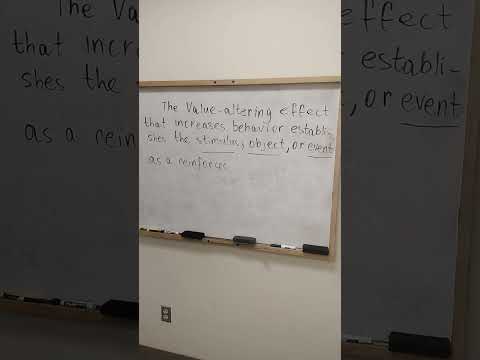 The Value-altering effect
that increases behavior establi-
shes the stimulus, object, or event
as a reinforcer